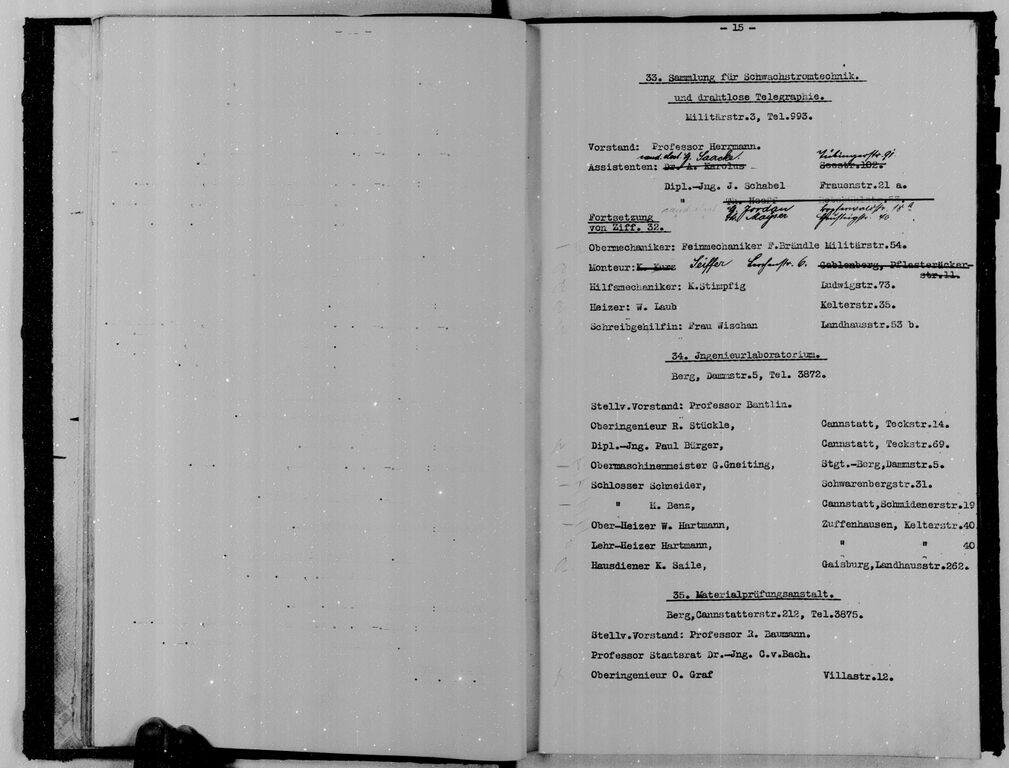 - 15 -
33. Sammlung für Schwachstromtechnik.
und drahtlose Telegraphie.
Militärstr.3, Tel.993.
Vorstand: Professor Herrmann.
cand. elect. G. Saacke. Tübingerstr. 91
Assistenten: Dr. A. Karolus Seestr.102.
Dipl.-Jng. J. Schabel Frauenstr.21 a.
" Th. Hoepf
G. Jordan
Th. Mayser
Fortsetzung
von Ziff. 32.
Obermechaniker: Feinmechaniker F.Brändle Militärstr.54.
Monteur: K. Kurz Seiffer Lerchenstr. 6. Gablenberg, Pflasteräcker-
str.11.
Hilfsmechaniker: K.Stimpfig Ludwigstr.73.
Heizer: W. Laub Kelterstr.35.
Schreibgehilfin: Frau Wischan Landhausstr.53 b.
34. Jngenieurlaboratorium.
Berg, Dammstr.5, Tel. 3872.
Stellv.Vorstand: Professor Bantlin.
Oberingenieur R. Stückle, Cannstatt, Teckstr.14.
Dipl.-Jng. Paul Bürger, Cannstatt, Teckstr.69.
Obermaschinenmeister G.Gneiting, Stgt.-Berg,Dammstr.5.
Schlosser Schneider, Schwarenbergstr.31.
" H. Benz, Cannstatt,Schmidenerstr.19
Ober-Heizer W. Hartmann, Zuffenhausen, Kelterstr.40.
Lehr-Heizer Hartmann, " " 40.
Hausdiener K. Saile, Gaisburg,Landhausstr.262.
35. Materialprüfungsanstalt.
Berg,Cannstatterstr.212, Tel.3875.
Stellv.Vorstand: Professor R. Baumann.
Professor Staatsrat Dr.-Jng. C.v.Bach.
Oberingenieur O. Graf Villastr.12.